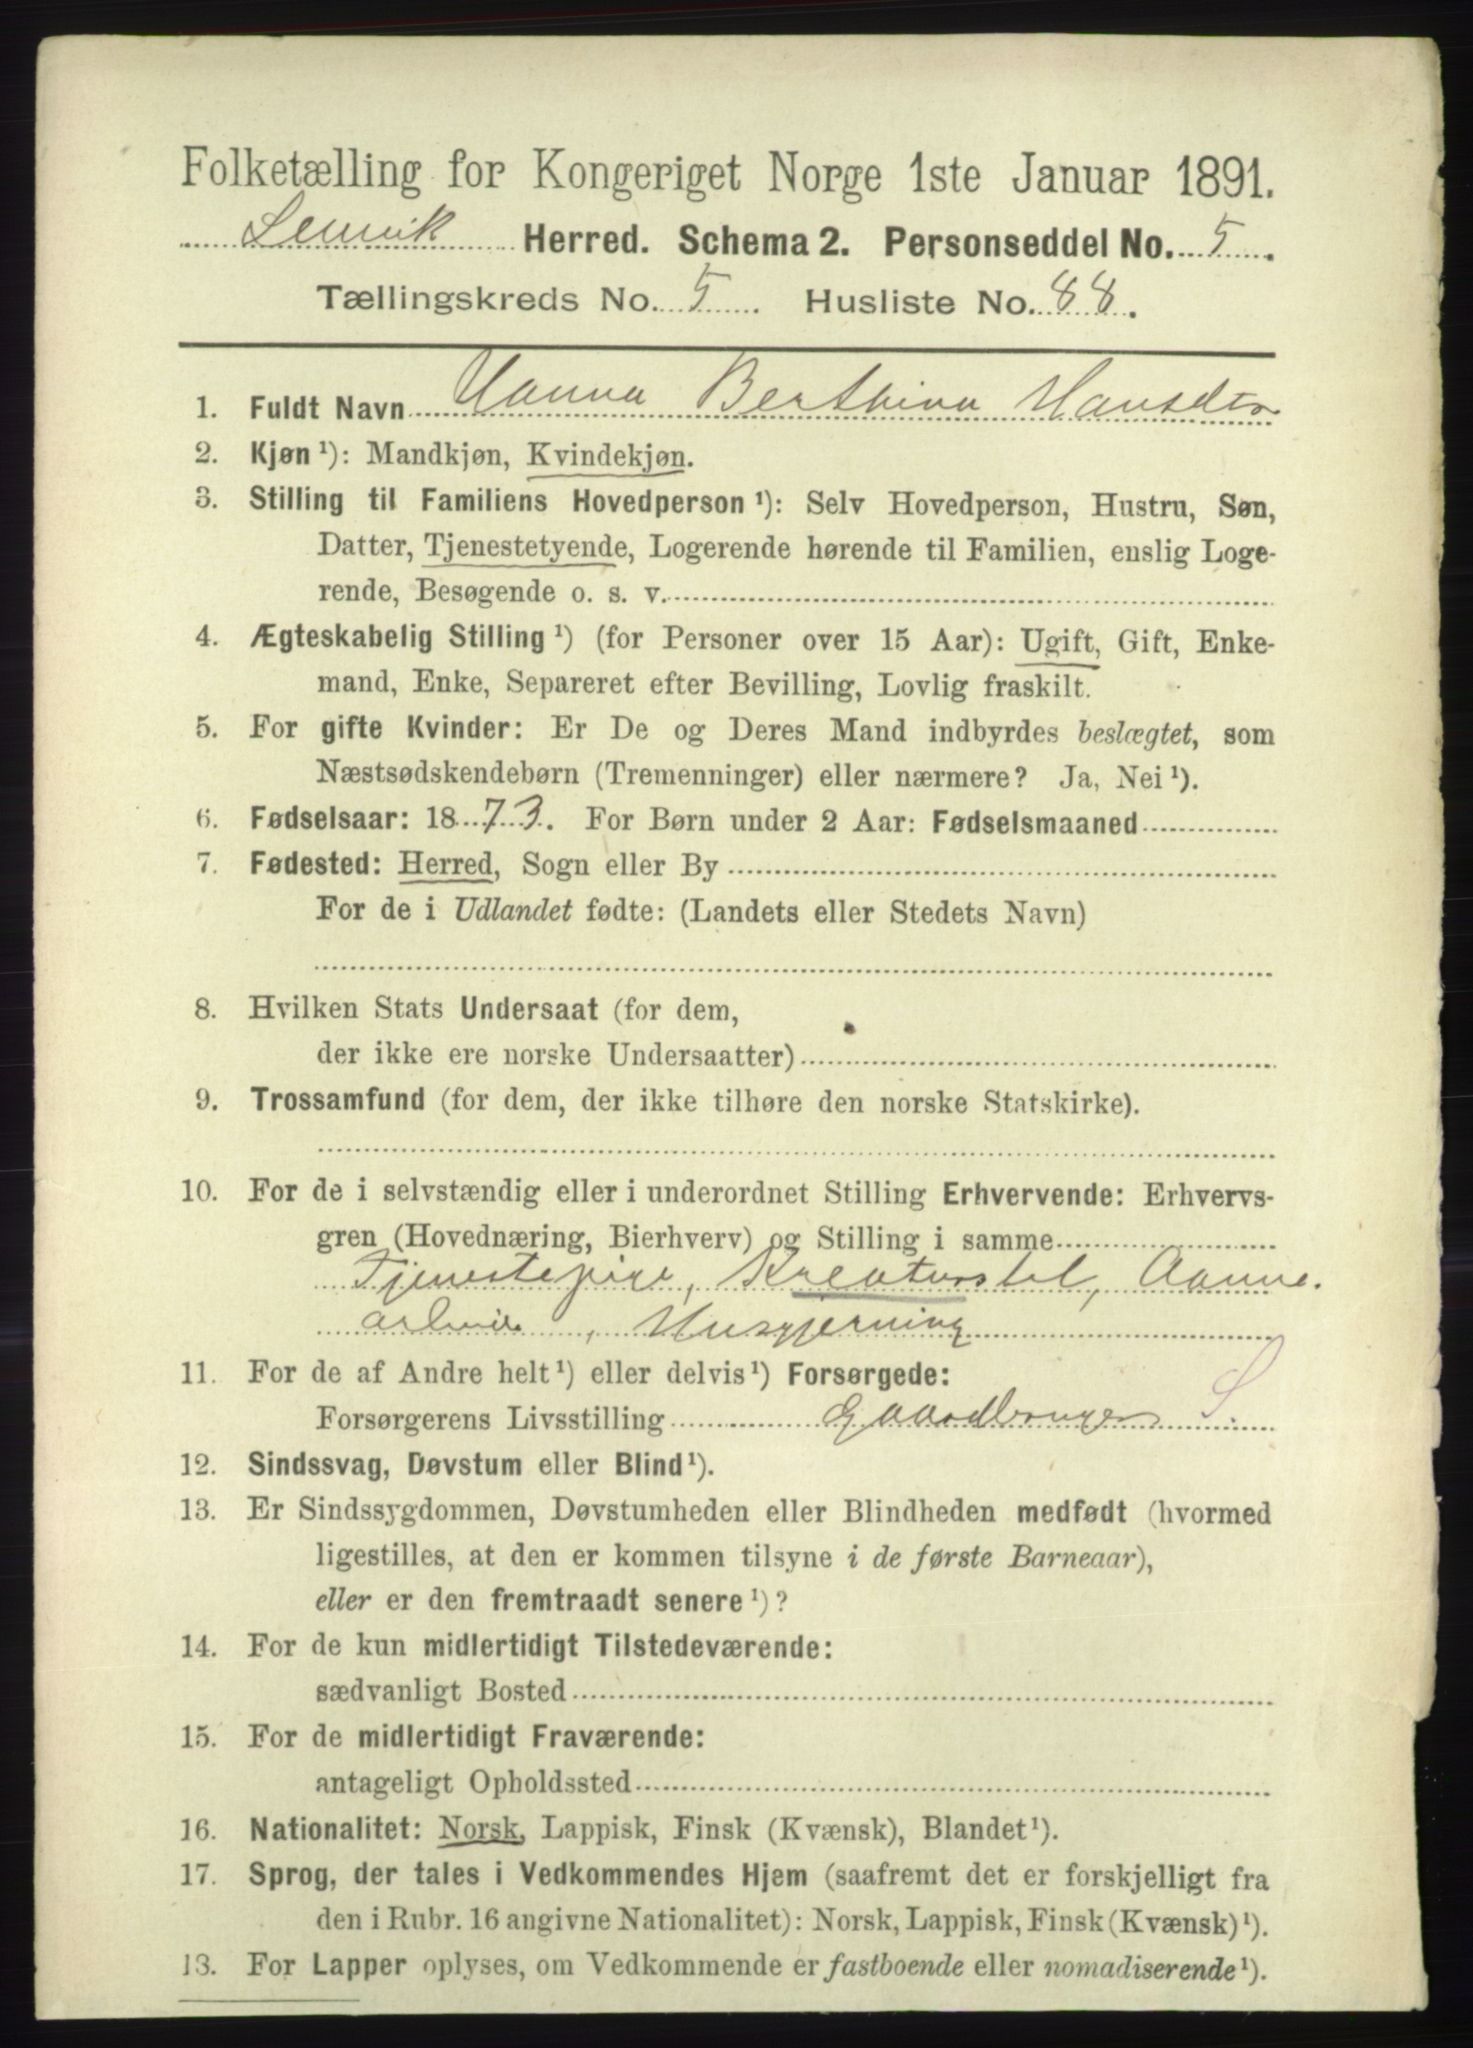 Folketælling for Kongeriget Norge 1ste Januar 1891.
Lenvik Herred. Schema 2. Personseddel No. 5.
Tællingskreds No. 5. Husliste No. 88.
1. Fuldt Navn Hanna Berthina Hansdtr
2. Kjøn ¹): Mandkjøn, Kvindekjøn.
3. Stilling til Familiens Hovedperson ¹): Selv Hovedperson, Hustru, Søn,
Datter, Tjenestetyende, Logerende hørende til Familien, enslig Loge-
rende, Besøgende o. s. v.
4. Ægteskabelig Stilling ¹) (for Personer over 15 Aar): Ugift, Gift, Enke-
mand, Enke, Separeret efter Bevilling, Lovlig fraskilt.
5. For gifte Kvinder: Er De og Deres Mand indbyrdes beslægtet, som
Næstsødskendebørn (Tremenninger) eller nærmere? Ja, Nei ¹).
6. Fødselsaar: 1873. For Børn under 2 Aar: Fødselsmaaned
7. Fødested: Herred, Sogn eller By
For de i Udlandet fødte: (Landets eller Stedets Navn)
8. Hvilken Stats Undersaat (for dem,
der ikke ere norske Undersaatter)
9. Trossamfund (for dem, der ikke tilhøre den norske Statskirke).
10. For de i selvstændig eller i underordnet Stilling Erhvervende: Erhvervs-
gren (Hovednæring, Bierhverv) og Stilling i samme
Tjenestepige, Kreaturstel, Aanne.
arbeide, Husgjerning
11. For de af Andre helt ¹) eller delvis ¹) Forsørgede:
Forsørgerens Livsstilling Gaardbruger S.
12. Sindssvag, Døvstum eller Blind ¹).
13. Er Sindssygdommen, Døvstumheden eller Blindheden medfødt (hvormed
ligestilles, at den er kommen tilsyne i de første Barneaar),
eller er den fremtraadt senere ¹)?
14. For de kun midlertidigt Tilstedeværende:
sædvanligt Bosted
15. For de midlertidigt Fraværende:
antageligt Opholdssted
16. Nationalitet: Norsk, Lappisk, Finsk (Kvænsk), Blandet ¹).
17. Sprog, der tales i Vedkommendes Hjem (saafremt det er forskjelligt fra
den i Rubr. 16 angivne Nationalitet): Norsk, Lappisk, Finsk (Kvænsk) ¹).
13. For Lapper oplyses, om Vedkommende er fastboende eller nomadiserende ¹).